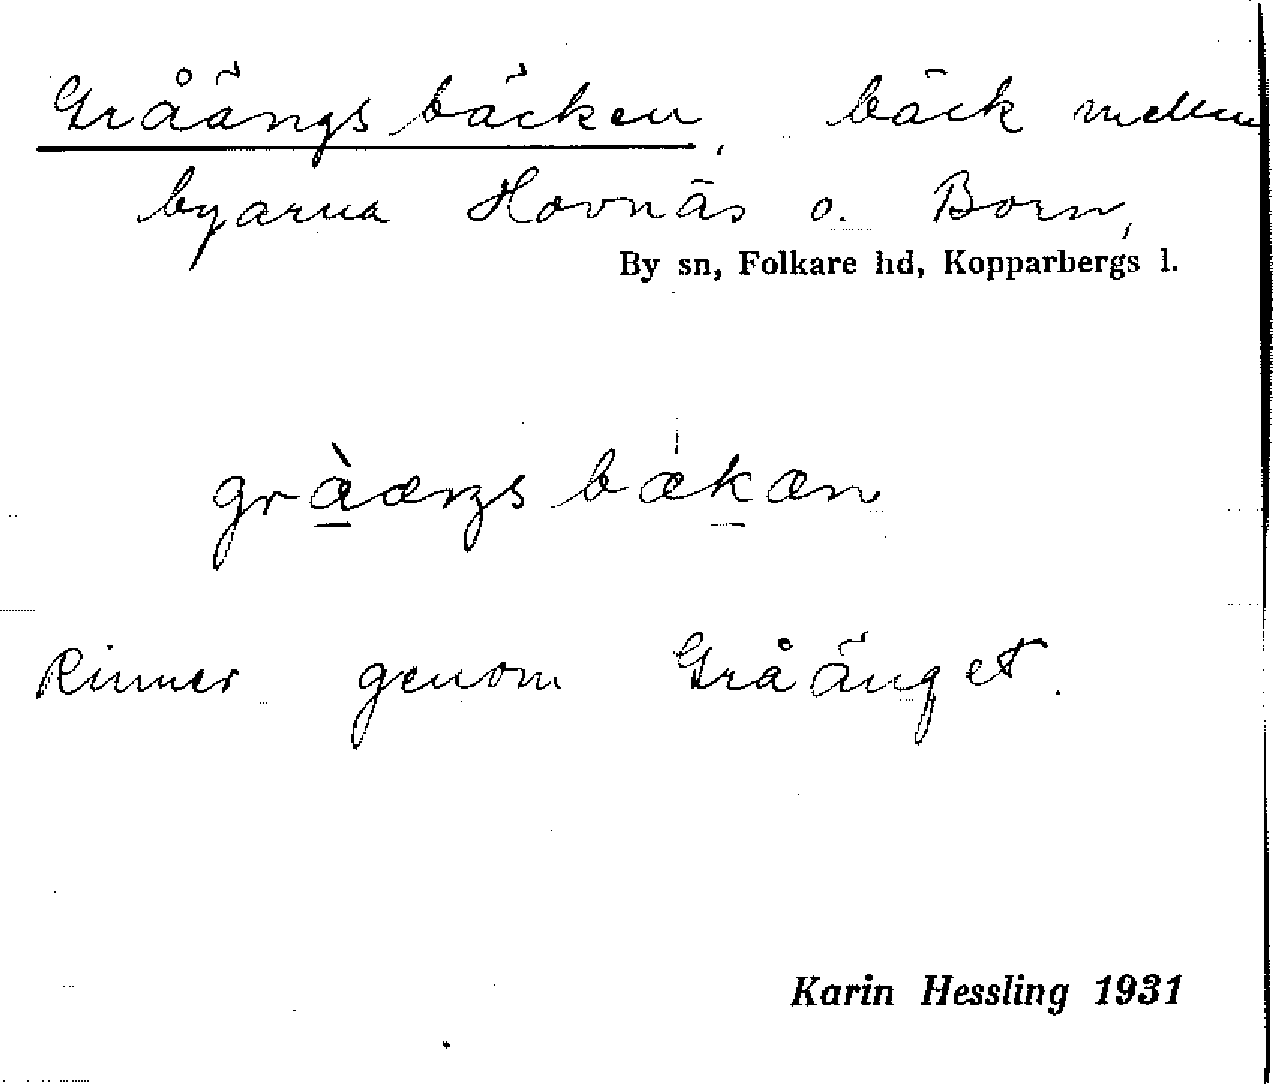 Gråängsbäcken, bäck mellan
byarna Hovnäs o. Born,
By sn, Folkare hd, Kopparbergs l.
gràæŋsbækæn
Rinner genom Gråänget.
Karin Hessling 1931